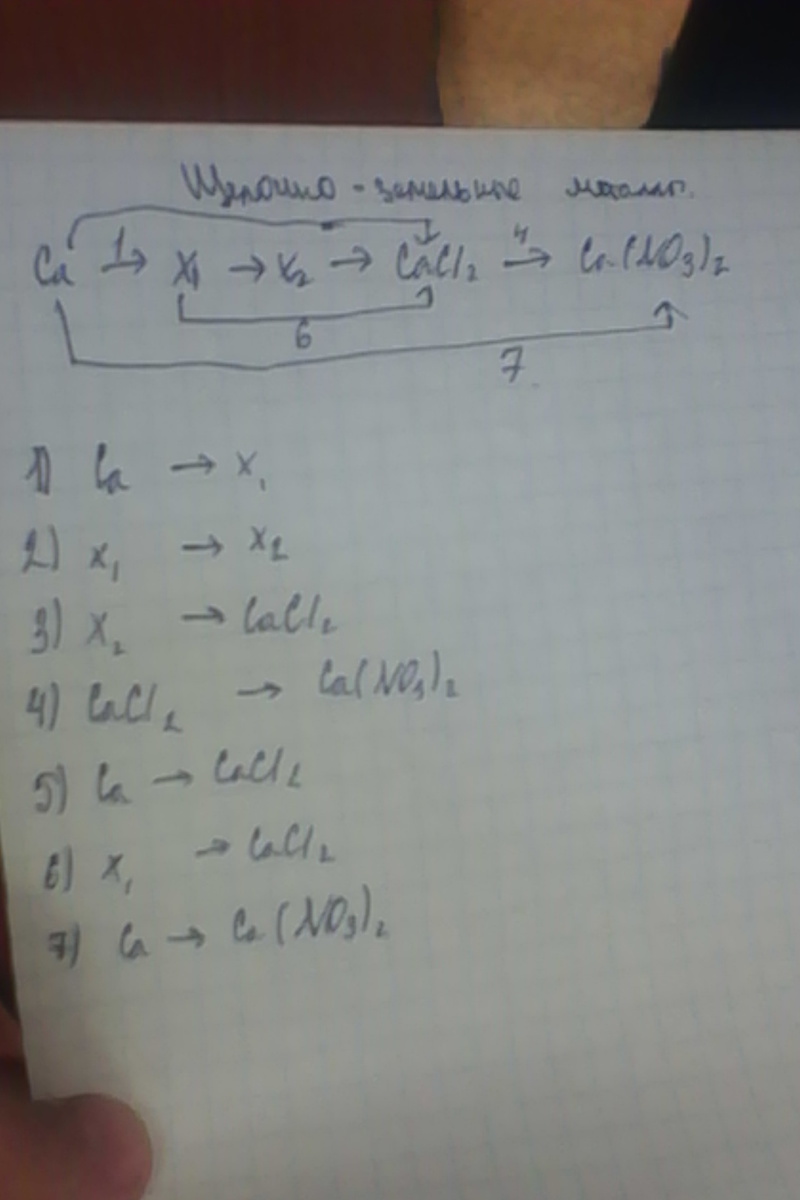 Щелочно-земельные металлы.
Ca 1→ X₁ → X₂ → CaCl₂ 4→ Ca(NO₃)₂
6
7
1) Ca → X₁
2) X₁ → X₂
3) X₂ → CaCl₂
4) CaCl₂ → Ca(NO₃)₂
5) Ca → CaCl₂
6) X₁ → CaCl₂
7) Ca → Ca(NO₃)₂